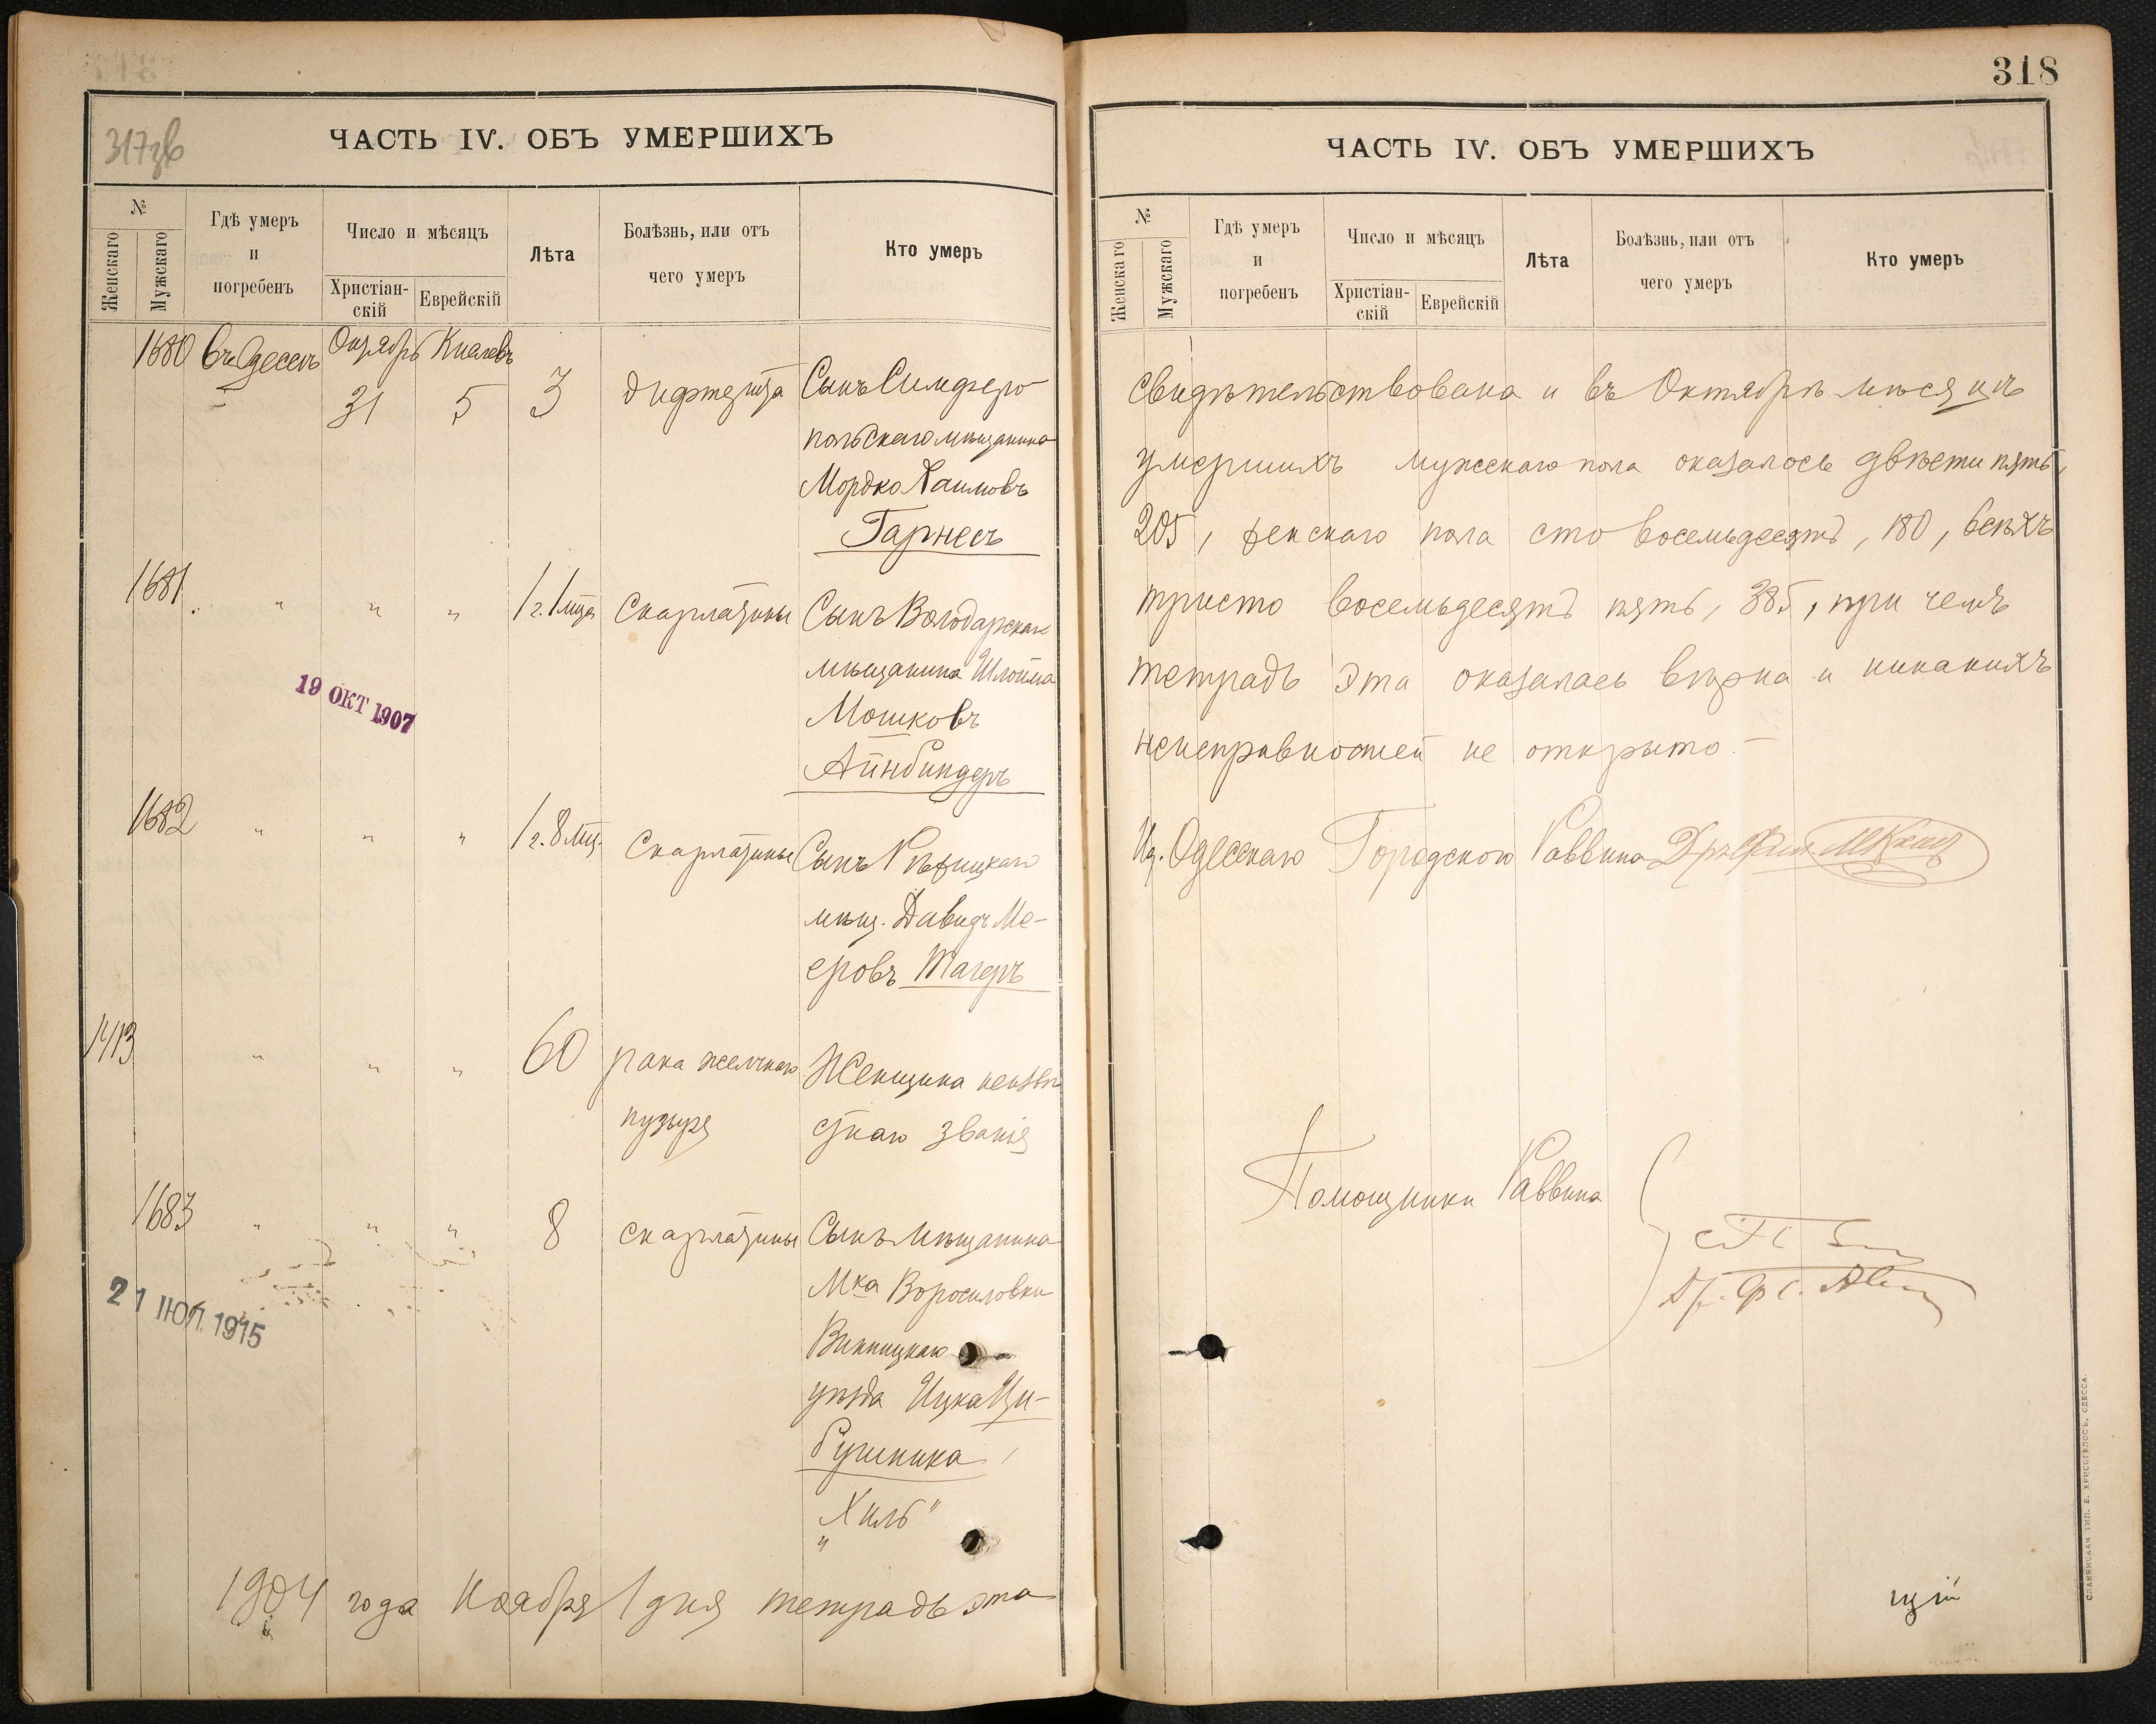 317зв
ЧАСТЬ IV. ОБЪ УМЕРШИХЪ
№
Женскаго
Мужскаго
Гдѣ умеръ
и
погребенъ
Число и мѣсяцъ
Христіан-
скій
Еврейскій
Лѣта
Болѣзнь, или отъ
чего умеръ
Кто умеръ
1680 въ Одессѣ Октябрь Кислевъ
31 5 3 дифтерита Сынъ Симферо-
польскаго мѣщанина
Мордко Хаимовъ
Гарнесъ
1681 " " " 1 г. 1 мца Скарлатины Сынъ Володарскаго
мѣщанина Шлойма
Мошковъ
Айнбиндеръ
19 ОКТ 1907
1682 " " " 1 г. 8 мц. Скарлатины Сынъ Рѣжицкаго
мѣщ. Давидъ Ме-
еровъ Тагеръ
1413 " " " 60 рака желчнаго Женщина неизвѣ
пузыря стнаго званія
1683 " " " 8 скарлатины Сынъ мѣщанина
Мка Воросиловки
Винницкаго
уѣзда Ицка Ци-
бушника
"Хиль"
21 ІЮЛ. 1915
1904 года Ноября 1 дня тетрадь эта
318
ЧАСТЬ IV. ОБЪ УМЕРШИХЪ
№
Женскаго
Мужскаго
Гдѣ умеръ
и
погребенъ
Число и мѣсяцъ
Христіан-
скій
Еврейскій
Лѣта
Болѣзнь, или отъ
чего умеръ
Кто умеръ
свидѣтельствована и въ Октябрѣ мѣсяцѣ
умершихъ мужскаго пола оказалось двѣсти пять,
205, женскаго пола сто восемьдесятъ, 180, всѣхъ
тристо восемьдесятъ пять, 385, при чемъ
тетрадь эта оказалась вѣрна и никакихъ
неисправностей не открыто.—
Ид. Одесскаго Городского Раввина Д-ръ Фил.
Помощники Раввина
щій
СЛАВЯНСКАЯ ТИП. Е. ХРИСОГЕЛОСЪ, ОДЕССА.